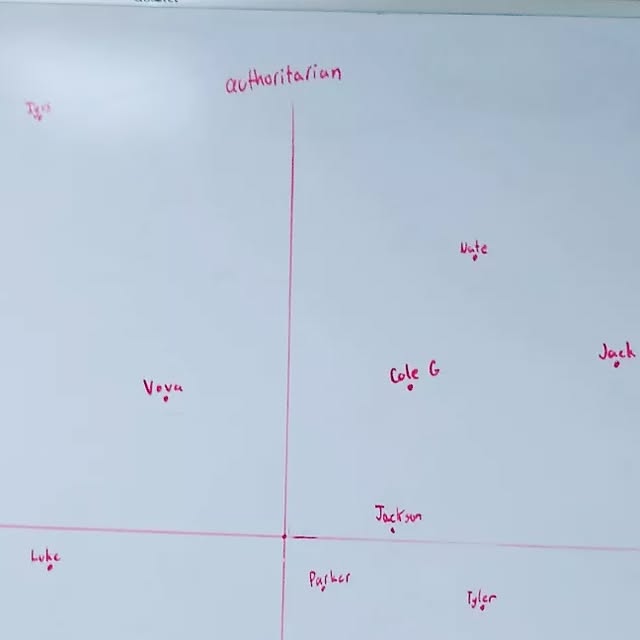 authoritarian
Nate
Jack
Cole G
Vova
Jackson
Luke
Parker
Tyler